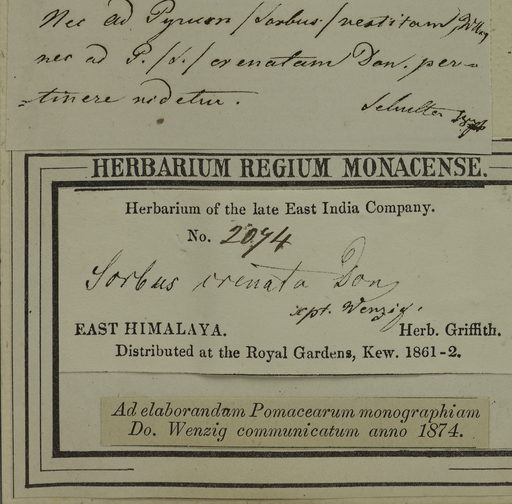 Nec ad Pyrum /Sorbus/ vestitam Wall.
nec ad P. /S./ crenatam Don. per-
-tinere videtur.
HERBARIUM REGIUM MONACENSE.
Herbarium of the late East India Company.
No. 2074
Sorbus crenata Don
Wenzig.
EAST HIMALAYA. Herb. Griffith.
Distributed at the Royal Gardens, Kew. 1861-2.
Ad elaborandam Pomacearum monographiam
Do. Wenzig communicatum anno 1874.